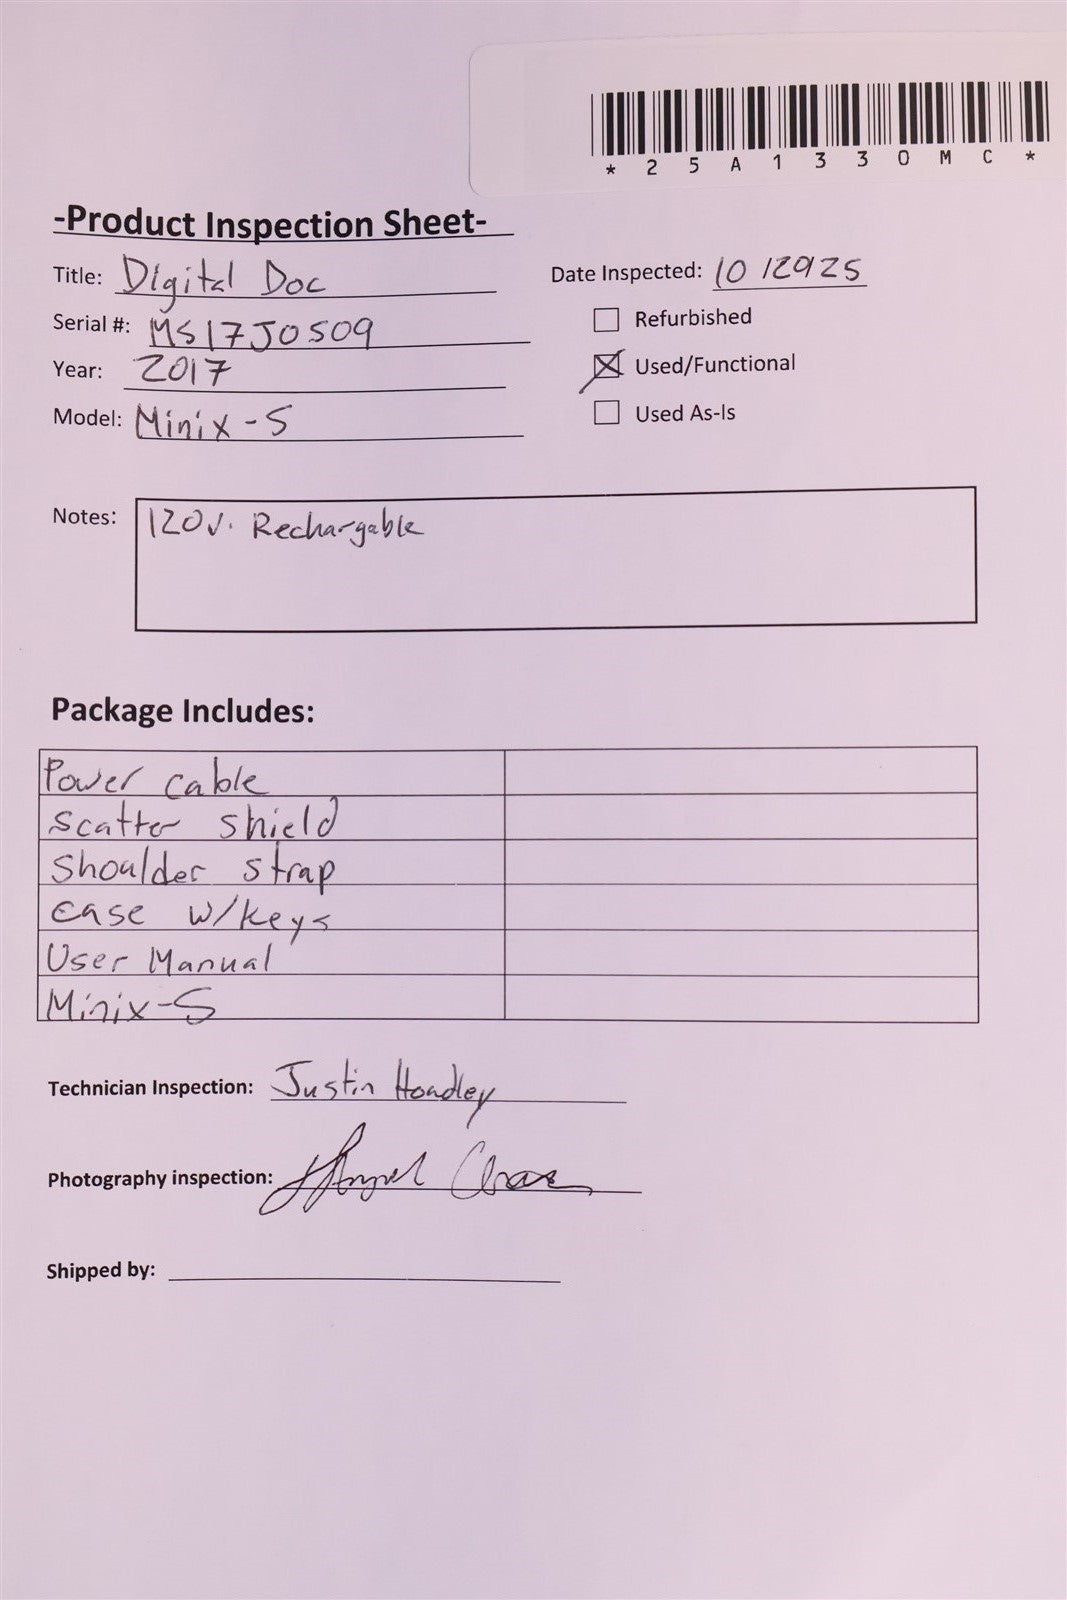 *25A1330MC*
-Product Inspection Sheet-
Title: Digital Doc
Date Inspected: 10/2925
Serial #: MS17J0509
Refurbished
Year: 2017
Used/Functional
Model: Minix-S
Used As-Is
Notes: 120V. Rechargable
Package Includes:
Power cable
Scatter shield
Shoulder strap
case w/keys
User Manual
Minix-S
Technician Inspection: Justin Hoadley
Photography inspection:
Shipped by: